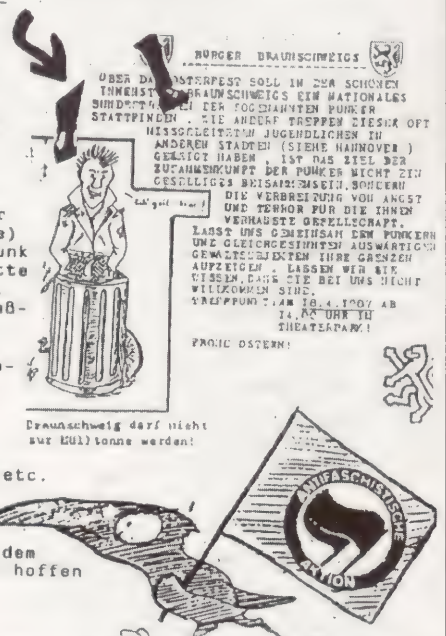 BÜRGER BRAUNSCHWEIGS
ÜBER DA OSTERFEST SOLL IN DER SCHÖNEN
INNENST BRAUNSCHWEIGS EIN NATIONALES
BUNDEST DER SOGENANNTEN PUNKER
STATTFINDEN . WIE ANDERE TREPPEN DIESER OFT
MISSGELEITETEN JUGENDLICHEN IN
ANDEREN STÄDTEN (SIEHE HANNOVER )
GEZEIGT HABEN , IST DAS ZIEL DER
ZUSAMMENKUNFT DER PUNKER NICHT EIN
GESELLIGES BEISAMMENSEIN, SONDERN
DIE VERBREITUNG VON ANGST
UND TERROR FÜR DIE IHNEN
VERHASSTE GESELLSCHAFT.
LASST UNS GEMEINSAM DEN PUNKERN
UND GLEICHGESINNTEN AUSWÄRTIGEN
GEWALTSUBJEKTEN IHRE GRENZEN
AUFZEIGEN . LASSEN WIR SIE
WISSEN, DASS SIE BEI UNS NICHT
WILLKOMMEN SIND.
TREFFPUNKT: AM 18.4.1987 AB
14.00 UHR IM
THEATERPARK!
FROHE OSTERN!
r
e)
unk
tte
aß-
o-
Braunschweig darf nicht
zur Mülltonne werden!
etc.
dem
hoffen
ANTIFASCHISTISCHE
AKTION